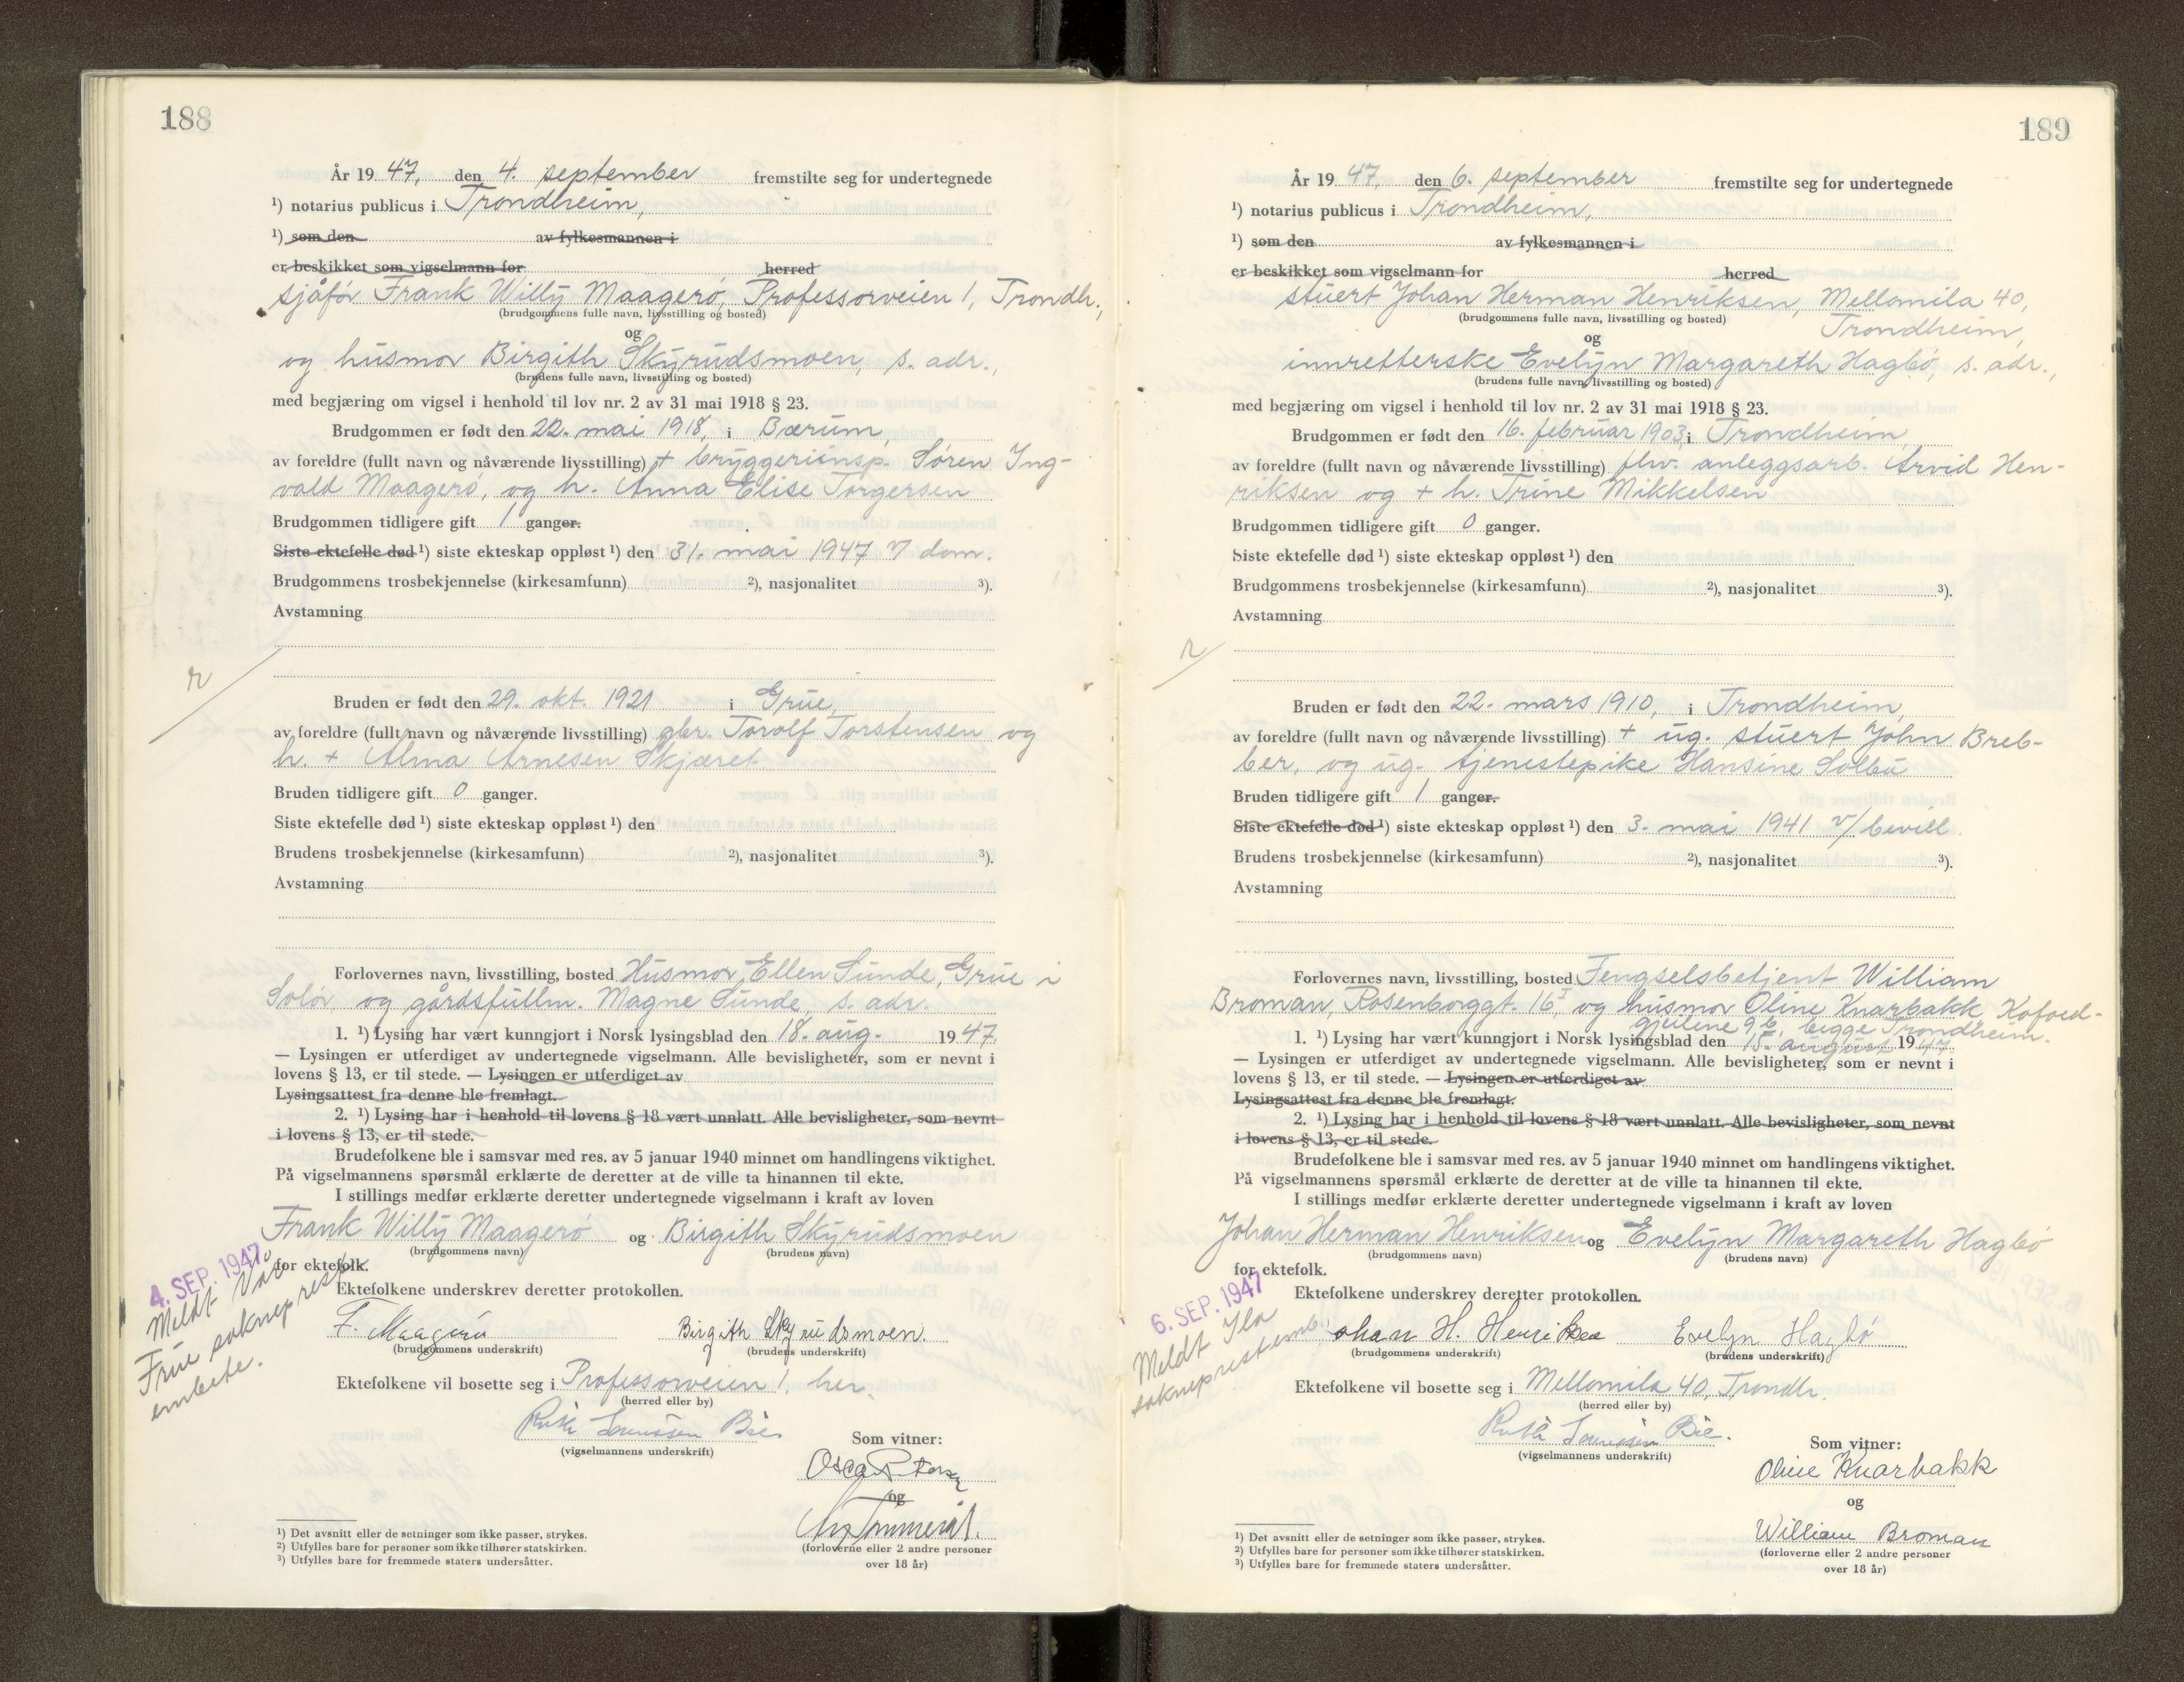 188
År 19 47, den 4. september fremstilte seg for undertegnede
¹) notarius publicus i Trondheim,
¹) som den av fylkesmannen i
er beskikket som vigselmann for herred
sjåfør Frank Willy Maagerø, Professorveien 1, Trondh.,
(brudgommens fulle navn, livsstilling og bosted)
og
og husmor Birgith Skyrudsmoen, s. adr.,
(brudens fulle navn, livsstilling og bosted)
med begjæring om vigsel i henhold til lov nr. 2 av 31 mai 1918 § 23.
Brudgommen er født den 22. mai 1918, i Bærum,
av foreldre (fullt navn og nåværende livsstilling) + bryggeriinsp. Søren Ing-
vald Maagerø, og h. Anna Elise Torgersen
Brudgommen tidligere gift 1 ganger.
Siste ektefelle død ¹) siste ekteskap oppløst ¹) den 31. mai 1947 v dom.
Brudgommens trosbekjennelse (kirkesamfunn) ²), nasjonalitet ³).
Avstamning
r
Bruden er født den 29. okt. 1921 i Grue,
av foreldre (fullt navn og nåværende livsstilling) gbr. Torolf Torstensen og
h. + Alma Arnesen Skjæret
Bruden tidligere gift 0 ganger.
Siste ektefelle død ¹) siste ekteskap oppløst ¹) den
Brudens trosbekjennelse (kirkesamfunn) ²), nasjonalitet ³).
Avstamning
Forlovernes navn, livsstilling, bosted Husmor Ellen Sunde, Grue i
Solør og gårdsfullm. Magne Sunde, s. adr.
1. ¹) Lysing har vært kunngjort i Norsk lysingsblad den 18. aug. 19 47.
— Lysingen er utferdiget av undertegnede vigselmann. Alle bevisligheter, som er nevnt i
lovens § 13, er til stede. — Lysingen er utferdiget av
Lysingsattest fra denne ble fremlagt.
2. ¹) Lysing har i henhold til lovens § 18 vært unnlatt. Alle bevisligheter, som nevnt
i lovens § 13, er til stede.
Brudefolkene ble i samsvar med res. av 5 januar 1940 minnet om handlingens viktighet.
På vigselmannens spørsmål erklærte de deretter at de ville ta hinannen til ekte.
I stillings medfør erklærte deretter undertegnede vigselmann i kraft av loven
Frank Willy Maagerø og Birgith Skyrudsmoen
(brudgommens navn) (brudens navn)
for ektefolk.
4. SEP. 1947
Meldt Vår
Frue sokneprest
embete.
Ektefolkene underskrev deretter protokollen.
F. Maagerø Birgith Skyrudsmoen.
(brudgommens underskrift) (brudens underskrift)
Ektefolkene vil bosette seg i Professorveien 1, her.
(herred eller by)
Ruth Sørenssen Bie.
(vigselmannens underskrift)
Som vitner:
og
(forloverne eller 2 andre personer
over 18 år)
¹) Det avsnitt eller de setninger som ikke passer, strykes.
²) Utfylles bare for personer som ikke tilhører statskirken.
³) Utfylles bare for fremmede staters undersåtter.
189
År 19 47, den 6. september fremstilte seg for undertegnede
¹) notarius publicus i Trondheim,
¹) som den av fylkesmannen i
er beskikket som vigselmann for herred
stuert Johan Herman Henriksen, Mellomila 40,
(brudgommens fulle navn, livsstilling og bosted)
Trondheim,
og
innretterske Evelyn Margareth Hagbø, s. adr.,
(brudens fulle navn, livsstilling og bosted)
med begjæring om vigsel i henhold til lov nr. 2 av 31 mai 1918 § 23.
Brudgommen er født den 16. februar 1903, i Trondheim,
av foreldre (fullt navn og nåværende livsstilling) fhv. anleggsarb. Arvid Hen-
riksen og + h. Trine Mikkelsen
Brudgommen tidligere gift 0 ganger.
Siste ektefelle død ¹) siste ekteskap oppløst ¹) den
Brudgommens trosbekjennelse (kirkesamfunn) ²), nasjonalitet ³).
Avstamning
r
Bruden er født den 22. mars 1910, i Trondheim,
av foreldre (fullt navn og nåværende livsstilling) + ug. stuert John Breb-
ber, og ug. tjenestepike Hansine Solbu
Bruden tidligere gift 1 ganger.
Siste ektefelle død ¹) siste ekteskap oppløst ¹) den 3. mai 1941 v/ bevill.
Brudens trosbekjennelse (kirkesamfunn) ²), nasjonalitet ³).
Avstamning
Forlovernes navn, livsstilling, bosted Fengselsbetjent William
Broman, Rosenborggt. 16 I, og husmor Oline Knarbakk, Kofoed-
gjeilene 9 b, begge Trondheim.
1. ¹) Lysing har vært kunngjort i Norsk lysingsblad den 15. august 19 47
— Lysingen er utferdiget av undertegnede vigselmann. Alle bevisligheter, som er nevnt i
lovens § 13, er til stede. — Lysingen er utferdiget av
Lysingsattest fra denne ble fremlagt.
2. ¹) Lysing har i henhold til lovens § 18 vært unnlatt. Alle bevisligheter, som nevnt
i lovens § 13, er til stede.
Brudefolkene ble i samsvar med res. av 5 januar 1940 minnet om handlingens viktighet.
På vigselmannens spørsmål erklærte de deretter at de ville ta hinannen til ekte.
I stillings medfør erklærte deretter undertegnede vigselmann i kraft av loven
Johan Herman Henriksen og Evelyn Margareth Hagbø
(brudgommens navn) (brudens navn)
for ektefolk.
6. SEP. 1947
Meldt Ila
sokneprestemb.
Ektefolkene underskrev deretter protokollen.
Johan H. Henriksen Evelyn Hagbø
(brudgommens underskrift) (brudens underskrift)
Ektefolkene vil bosette seg i Mellomila 40, Trondh.
(herred eller by)
Ruth Sørenssen Bie.
(vigselmannens underskrift)
Som vitner:
Oline Knarbakk
og
William Broman
(forloverne eller 2 andre personer
over 18 år)
¹) Det avsnitt eller de setninger som ikke passer, strykes.
²) Utfylles bare for personer som ikke tilhører statskirken.
³) Utfylles bare for fremmede staters undersåtter.